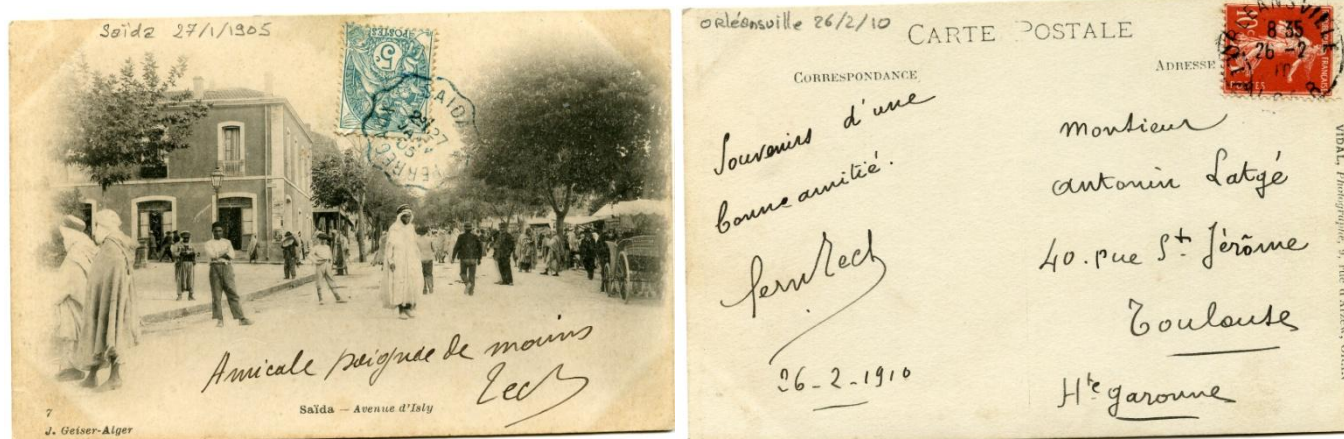 Saïda 27/1/1905
5c
SAIDA
27
JANV
05
Amicale poignée de mains
Tech
Saïda — Avenue d'Isly
7
J. Geiser-Alger
Orléansville 26/2/10
CARTE POSTALE
CORRESPONDANCE
ADRESSE
10
ORLÉANSVILLE
8 35
26 -2
10
Souvenirs d'une
bonne amitié.
26-2-1910
Monsieur
Antonin Latgé
40. rue St. Jérôme
Toulouse
Hte Garonne
VIDAL, Photographe